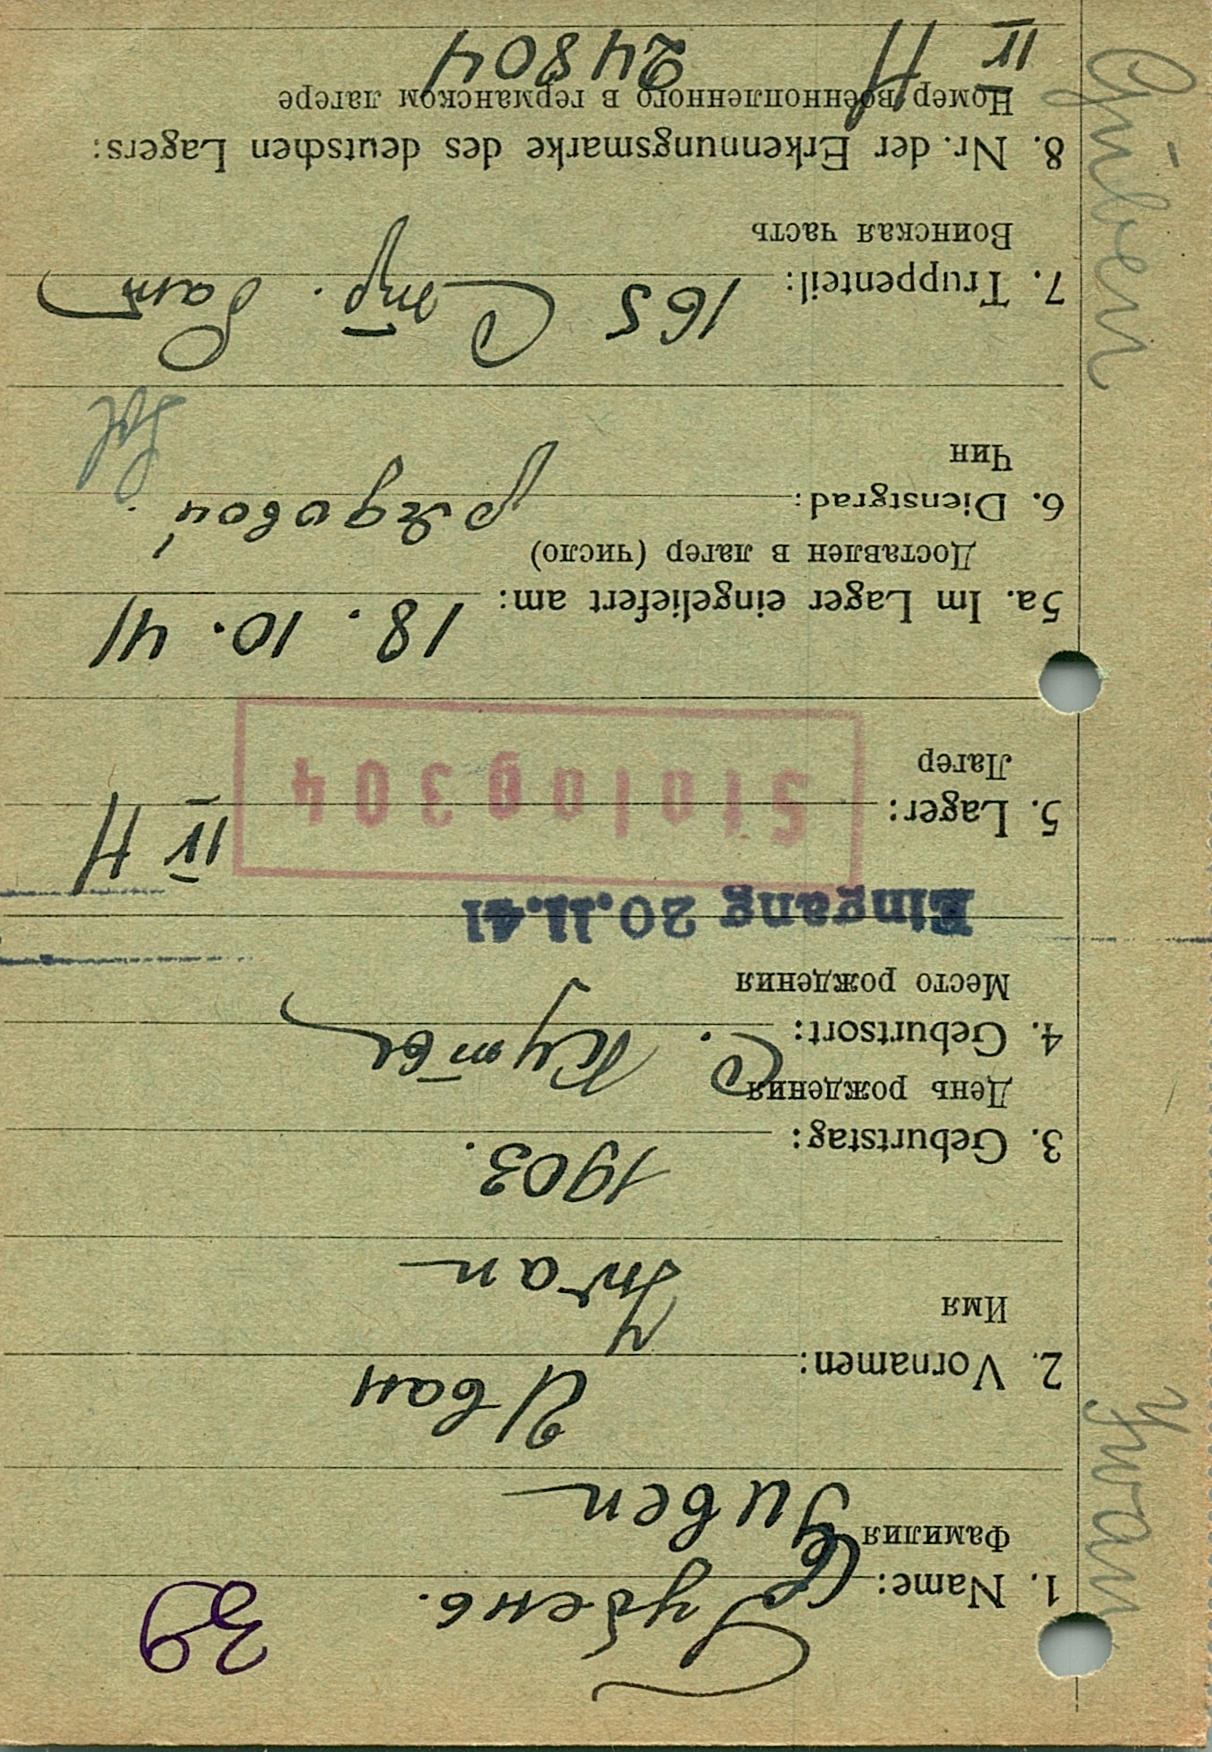 39
Губень.
1. Name:
Фамилия
Guben
Иван
2. Vornamen:
Имя
Iwan
1903.
3. Geburtstag:
День рождения
4. Geburtsort: С.
Место рождения
Eingang 20.11.41
5. Lager: IV H
Лагер
Stalag 304
5a. Im Lager eingeliefert am: 18. 10. 41
Доставлен в лагер (число)
6. Dienstgrad: рядовой
Чин
Sol
7. Truppenteil: 165 Стр. бат
Воинская часть
8. Nr. der Erkennungsmarke des deutschen Lagers:
Номер военнопленного в германском лагере
IV H 24804
Iwan
Guben